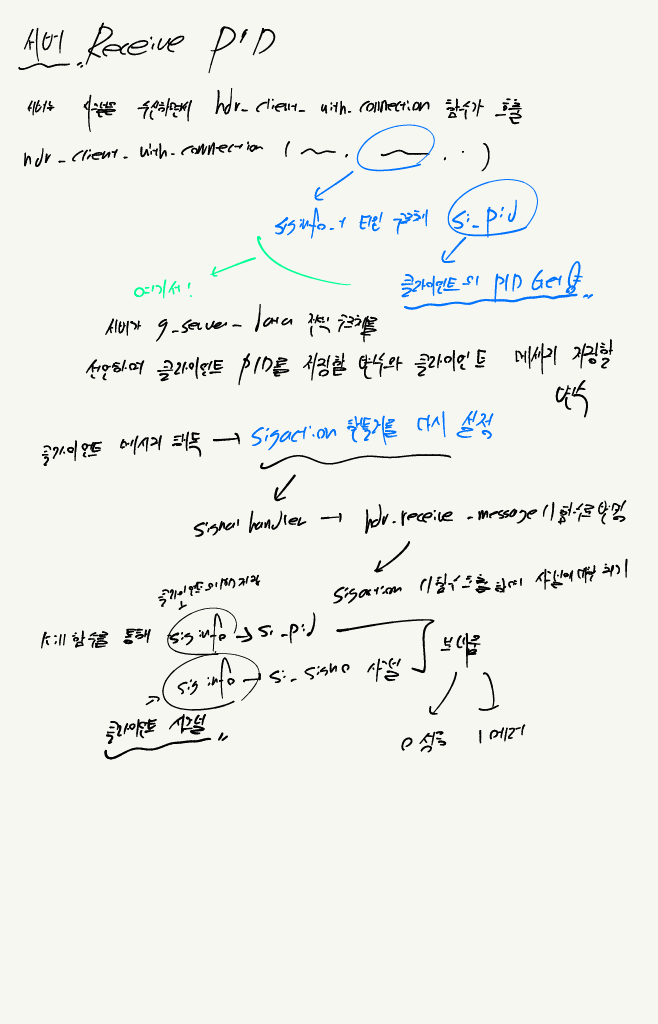 서버 Receive PID
서버는 시그널을 수신하면서 hdr_client_with_connection 함수가 호출
hdr_client_with_connection ( , , . . )
siginfo_t 타입 구조체 si_pid
클라이언트의 PID Get
여기서!
서버가 g_server_data 전역 구조체를
선언하며 클라이언트 PID를 저장할 변수와 클라이언트 메세지 저장할
변수
클라이언트 메세지 해독 → sigaction 핸들러를 다시 설정
signal handler → hdr_receive_message() 함수로 변경
sigaction () 함수 호출 대기
클라이언트의
kill 함수를 통해 siginfo → si_pid
보내줌
siginfo → si_signo 시그널
클라이언트 시그널
0 성공 1 에러